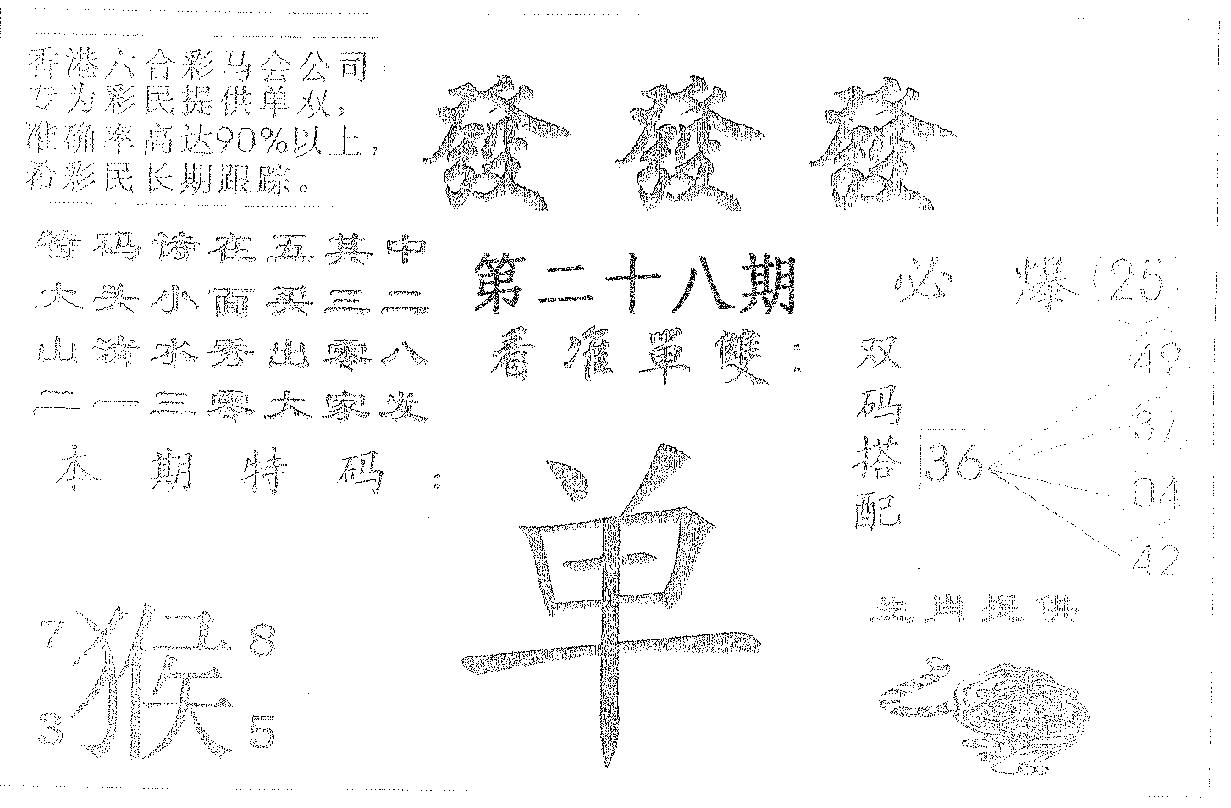 香港六合彩马会公司
专为彩民提供单双,
准确率高达90%以上,
希彩民长期跟踪。
發 發 發
特码诗在五其中
大头小面买三二
山清水秀出零八
二一三零大家发
本期特码:
第二十八期
看准單雙:
单
必爆(25)
双码搭配
36
49
37
04
42
生肖提供
7 猴 8
3 5